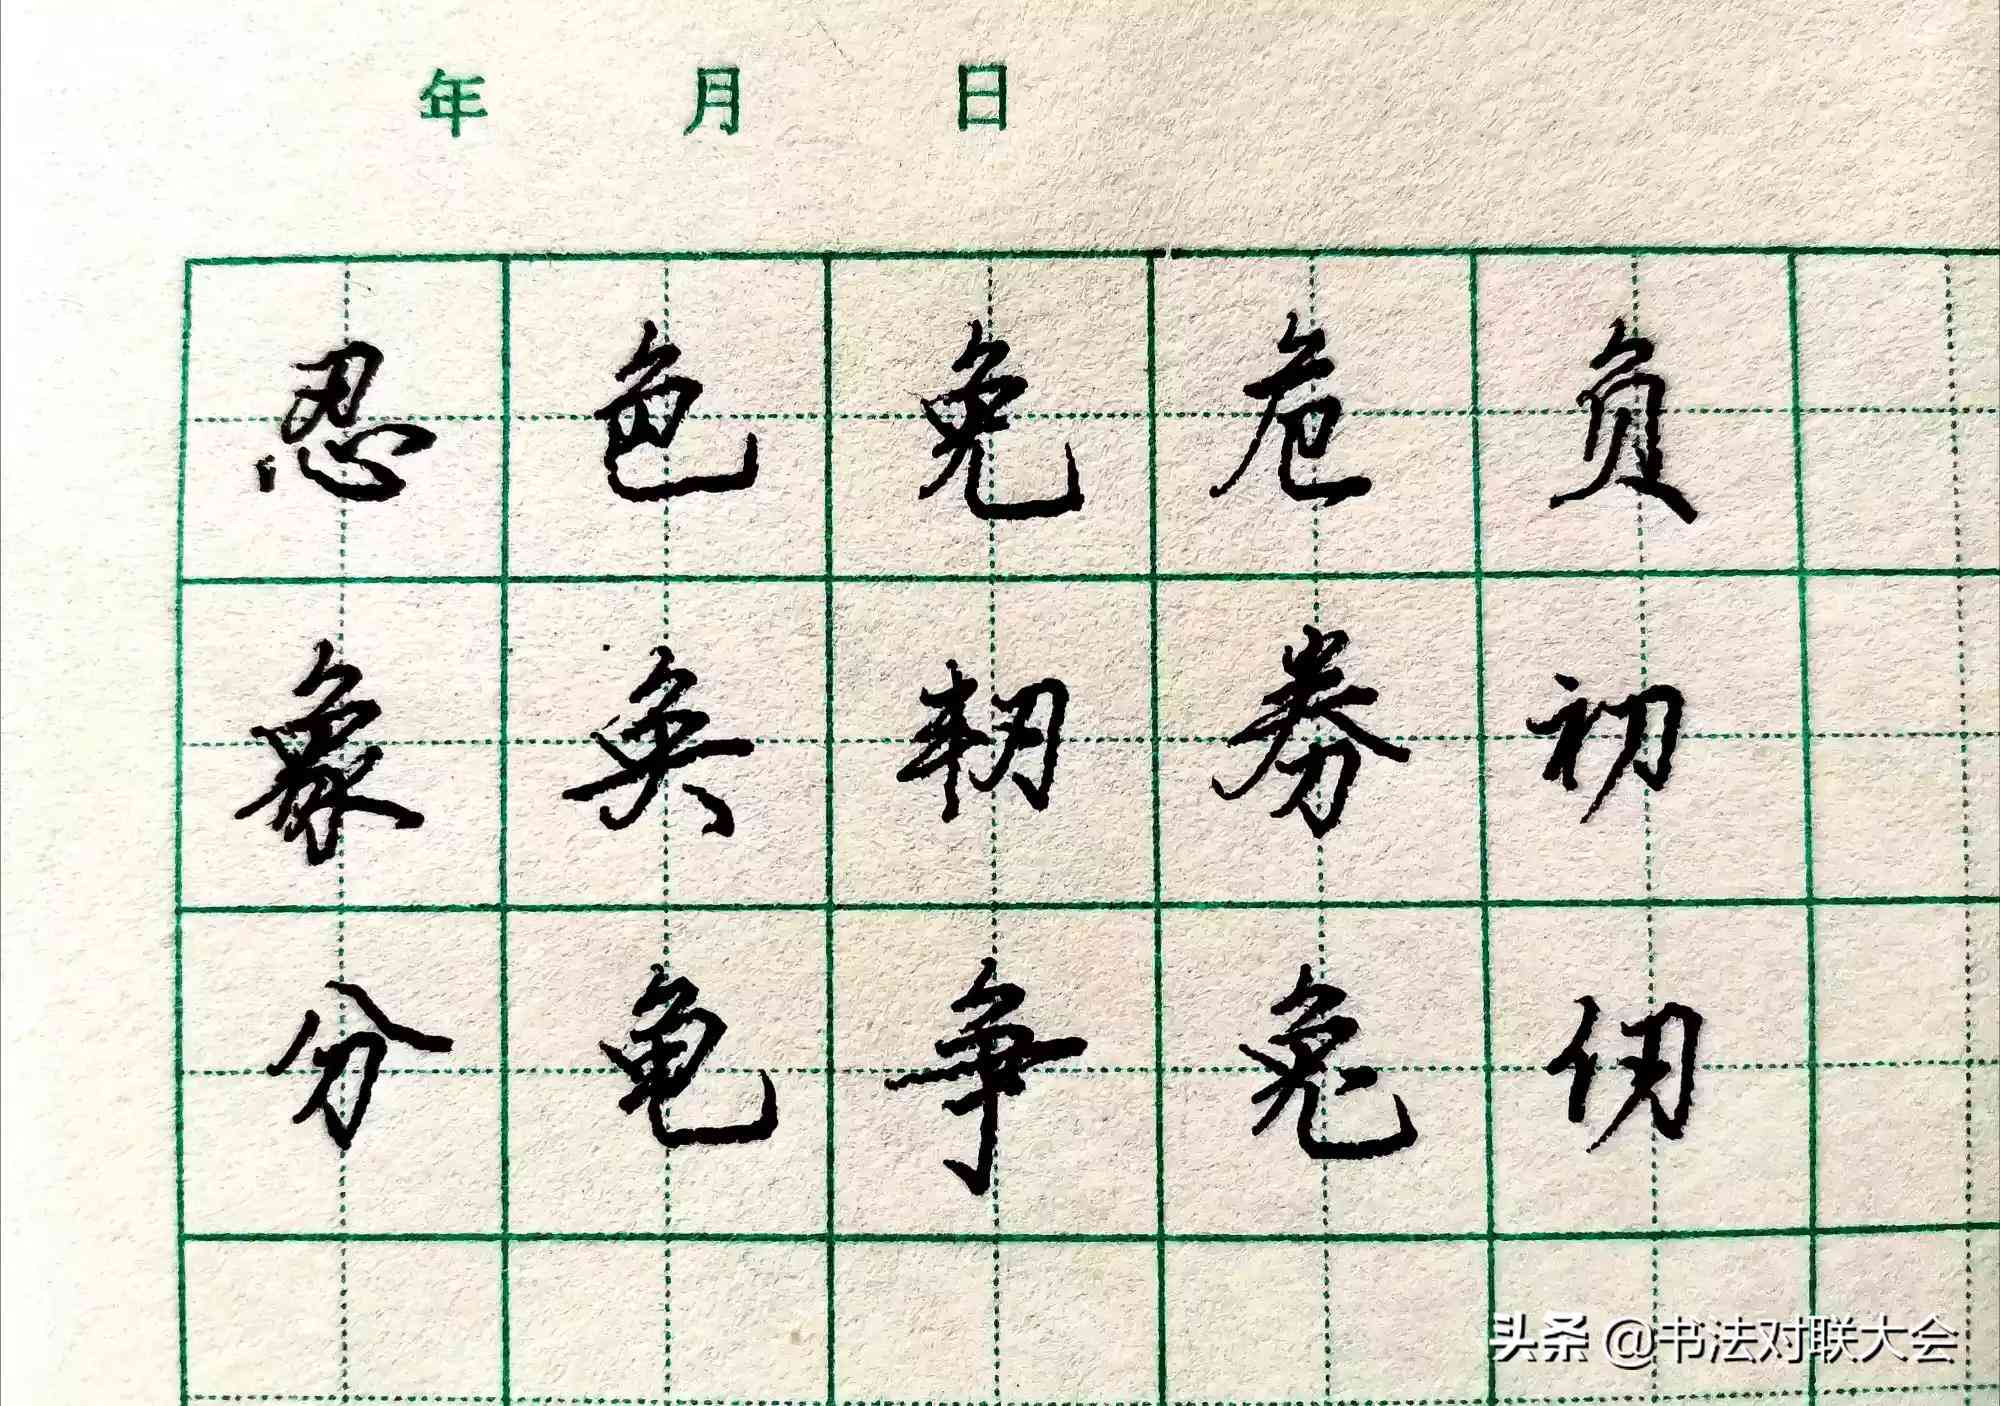 年 月 日
忍 色 免 危 负
象 奂 韧 券 初
分 龟 争 兔 仞
头条 @书法对联大会